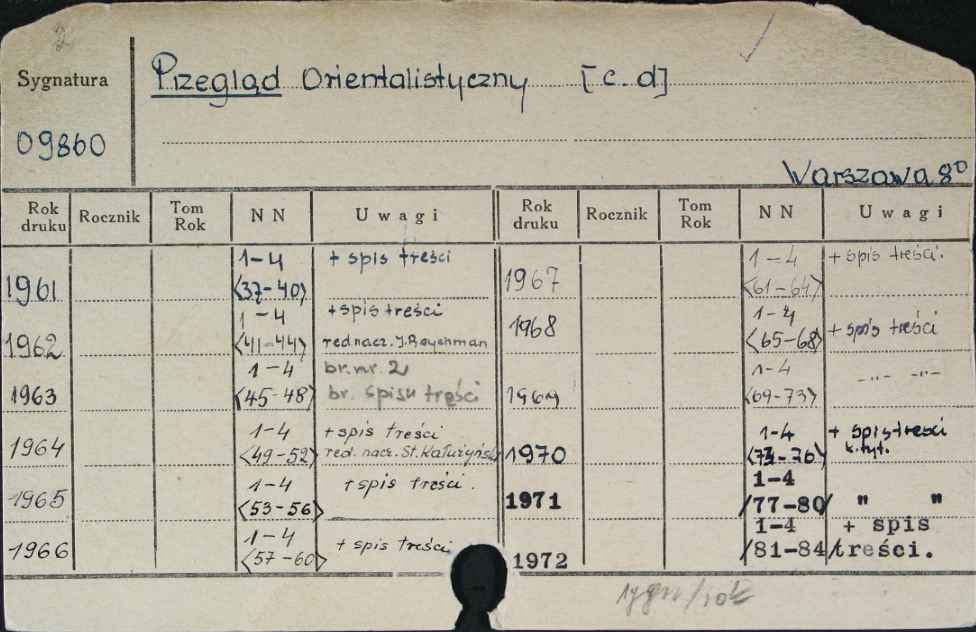 2
Sygnatura
Przegląd Orientalistyczny [c.d]
09860
Warszawa 8º
Rok druku Rocznik Tom Rok NN Uwagi
1961 1-4 <37-40> + spis treści
1962 1-4 <41-44> + spis treści red. nacz. J. Reychman
1963 1-4 <45-48> br. nr. 2 br. spisu treści
1964 1-4 <49-52> + spis treści red. nacz. St. Kałużyński
1965 1-4 <53-56> + spis treści.
1966 1-4 <57-60> + spis treści
Rok druku Rocznik Tom Rok NN Uwagi
1967 1-4 <61-64> + spis treści.
1968 1-4 <65-68> + spis treści
1969 1-4 <69-73> -"- -"-
1970 1-4 + spis treści k. tyt.
1971 1-4 /77-80/ " "
1972 1-4 /81-84/ + spis treści.